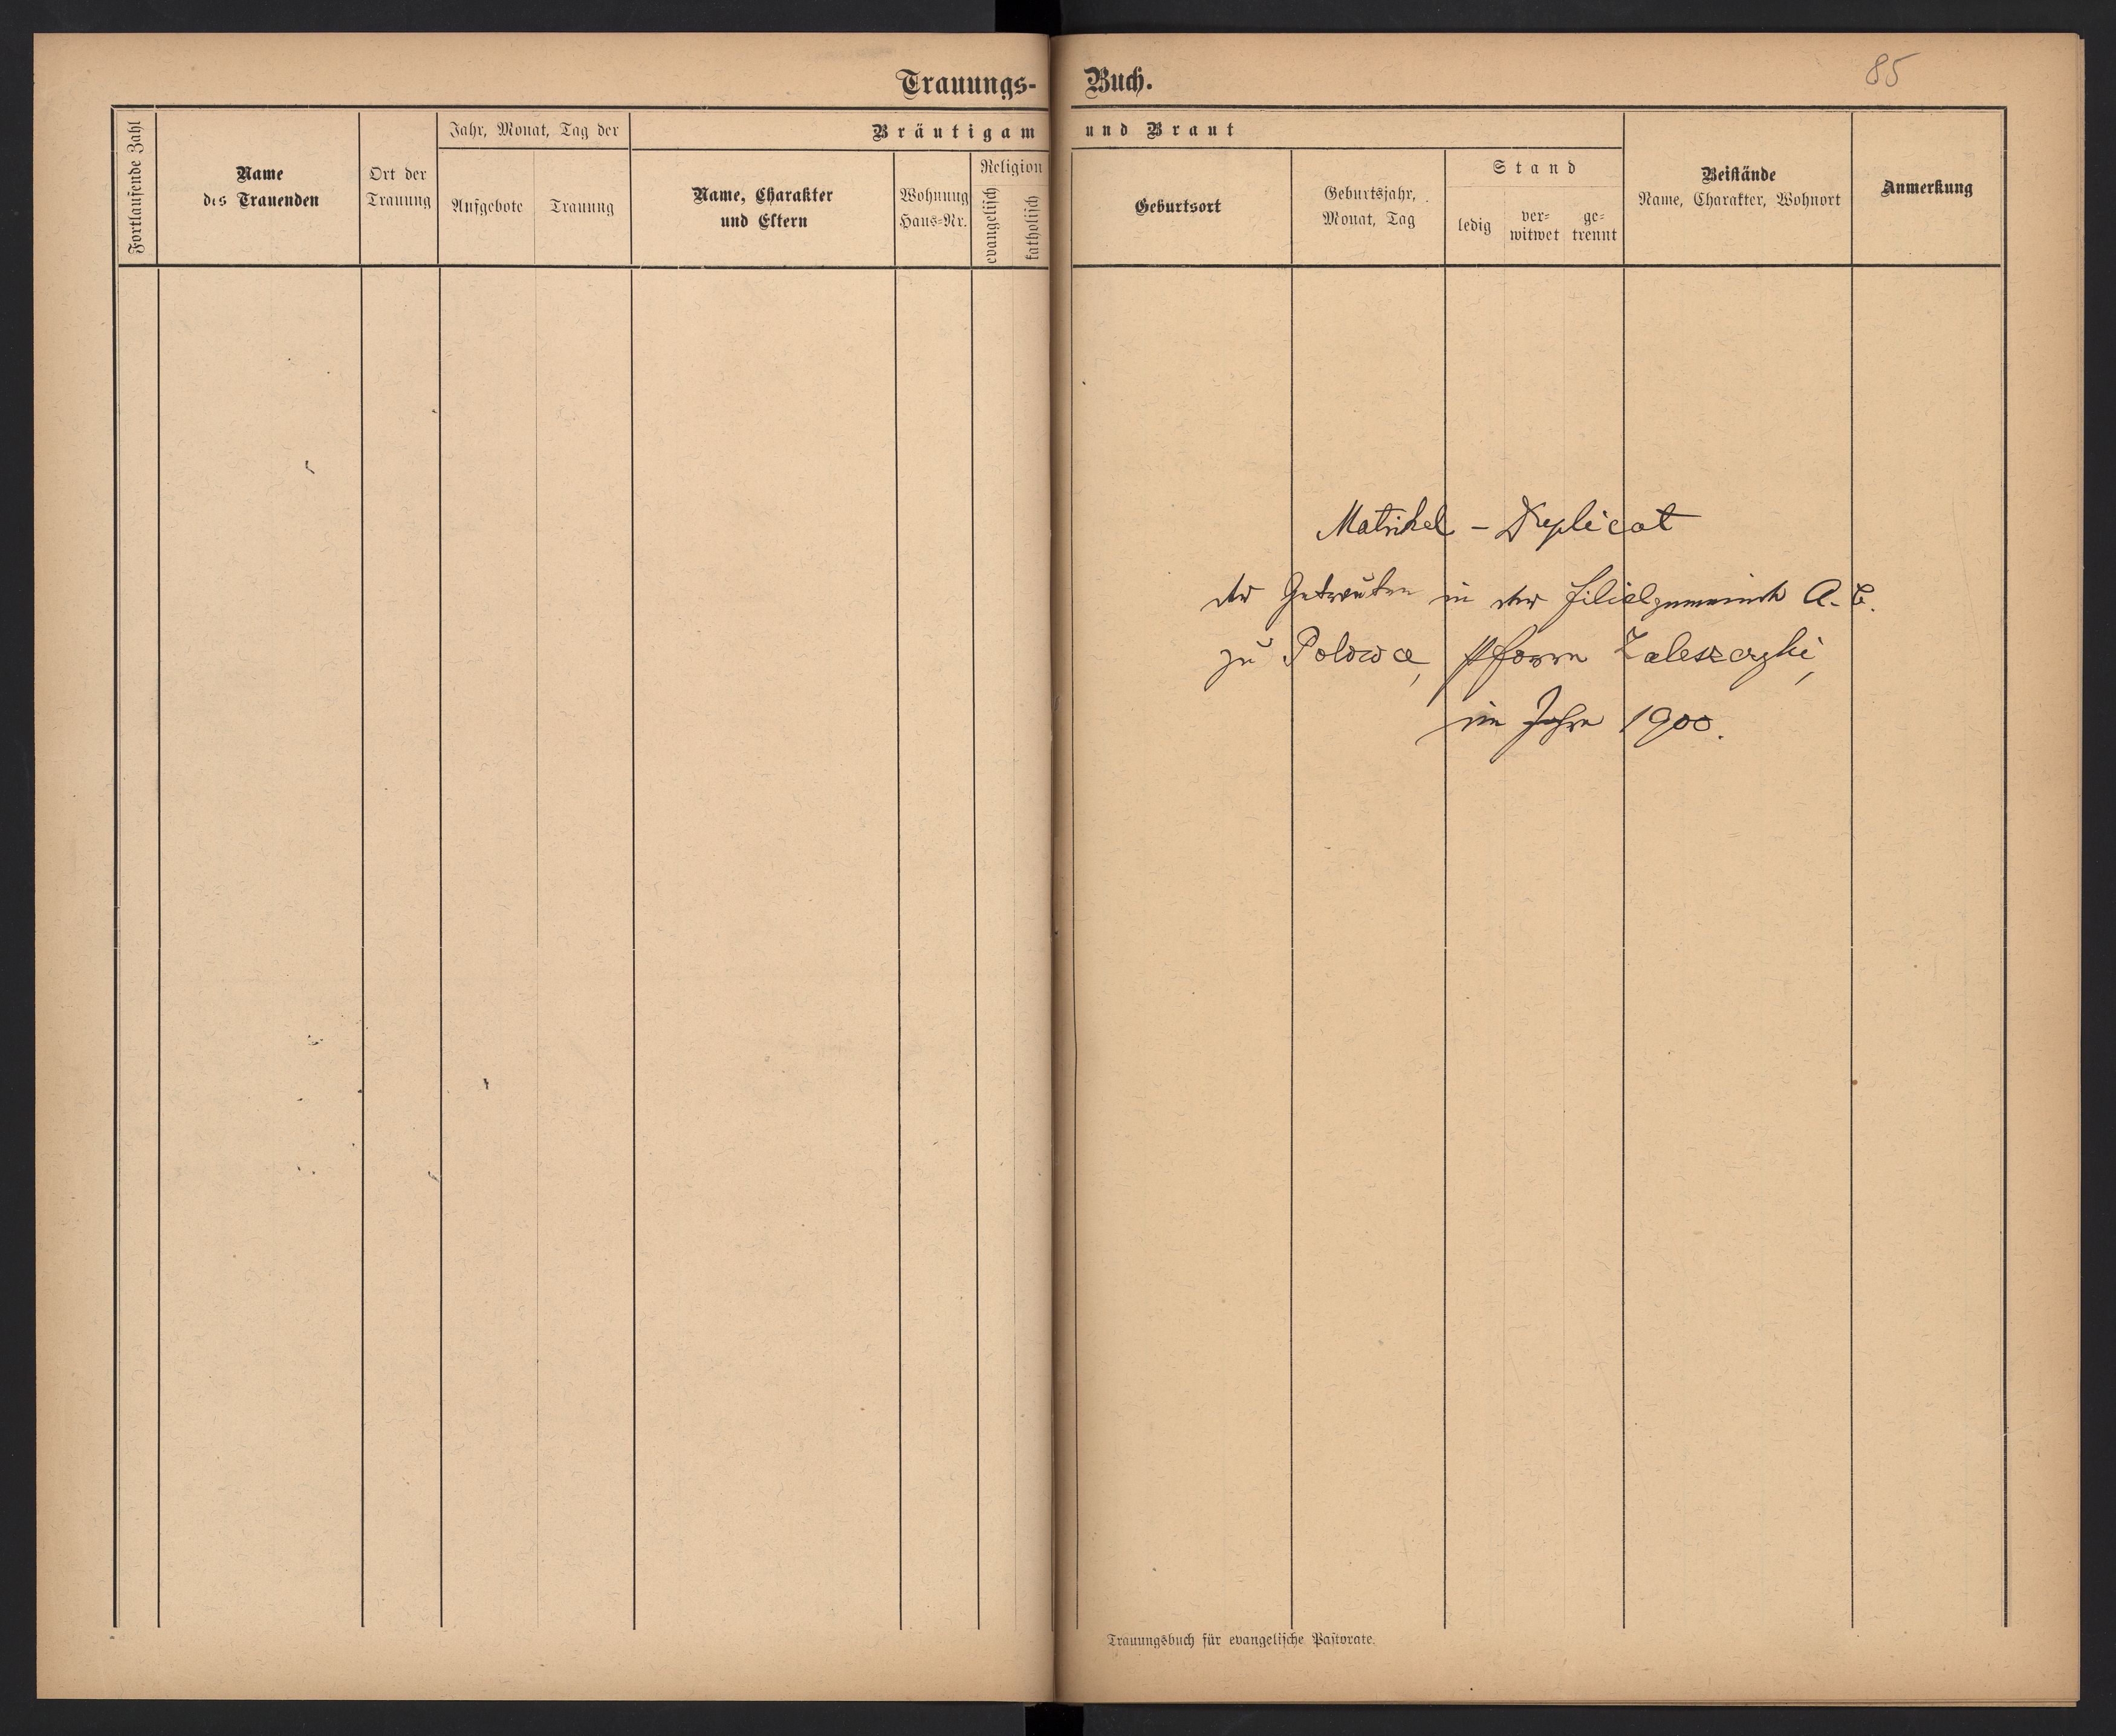 Trauungs-Buch.
85
Fortlaufende Zahl
Name
des Trauenden
Ort der
Trauung
Jahr, Monat, Tag der
Aufgebote
Trauung
Bräutigam und Braut
Name, Charakter
und Eltern
Wohnung
Haus-Nr.
Religion
evangelisch
katholisch
Geburtsort
Geburtsjahr,
Monat, Tag
Stand
ledig
ver-
witwet
ge-
trennt
Beistände
Name, Charakter, Wohnort
Anmerkung
Matrikel - Duplicat
der Getrauten in der Filialgemeinde A. C.
zu Polowce, Pfarre Zaleszczyki,
im Jahre 1900.
Trauungsbuch für evangelische Pastorate.